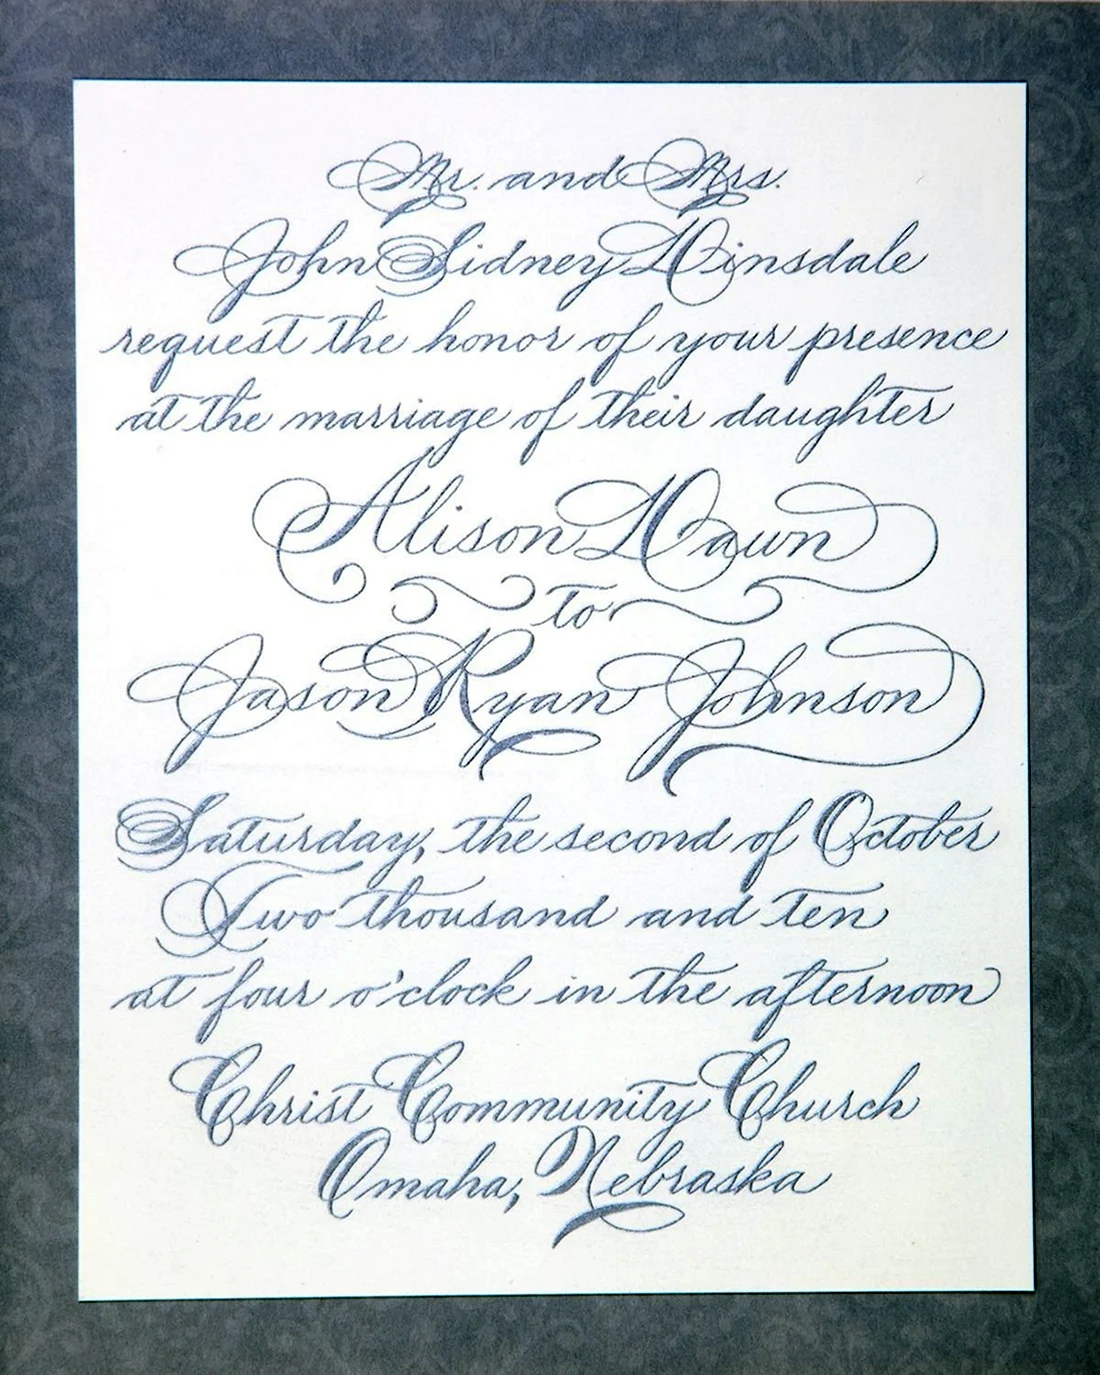 Mr. and Mrs.
John Sidney Dinsdale
request the honor of your presence
at the marriage of their daughter
Alison Dawn
to
Jason Ryan Johnson
Saturday, the second of October
Two thousand and ten
at four o'clock in the afternoon
Christ Community Church
Omaha, Nebraska